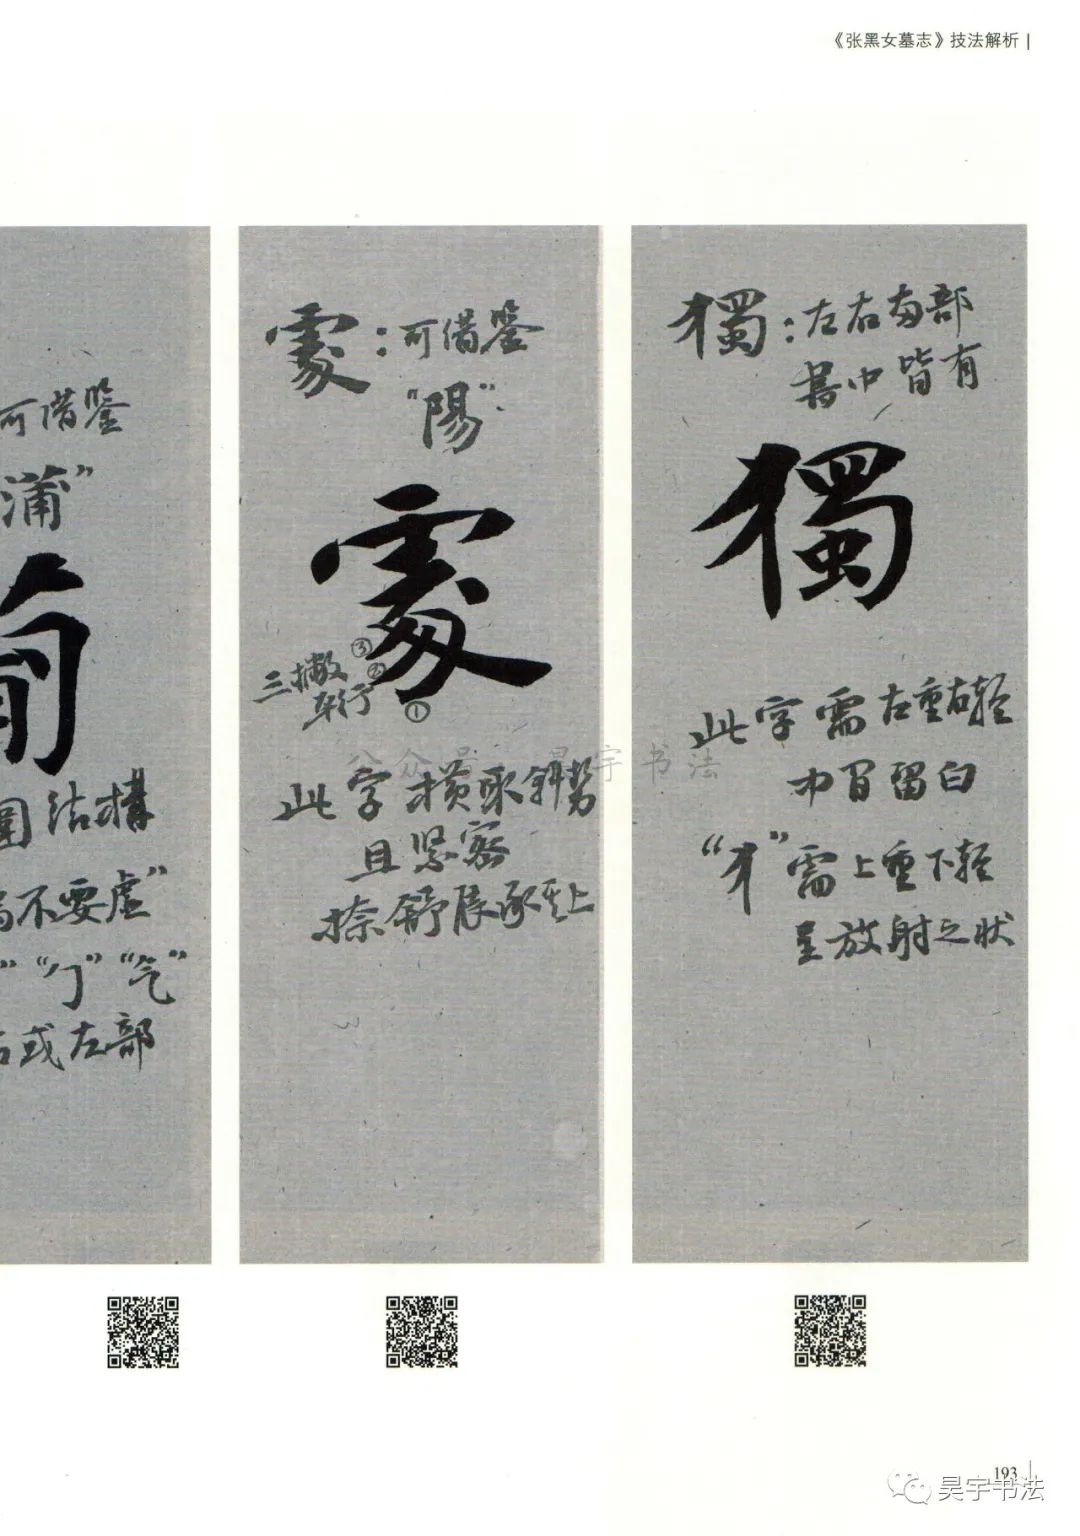 《张黑女墓志》技法解析
可借鉴
“蒲”
结構
不要虚”
“勹”“气”
或左部
霥:可借鉴
“陽”.
三撇
平行
③
②
①
此字横取斜势
且紧密
捺舒展承其上
獨:左右两部
集中皆有
獨
此字需左重右轻
中宫留白
“犭”需上重下轻
呈放射之状
公众号 昊宇书法
193
昊宇书法